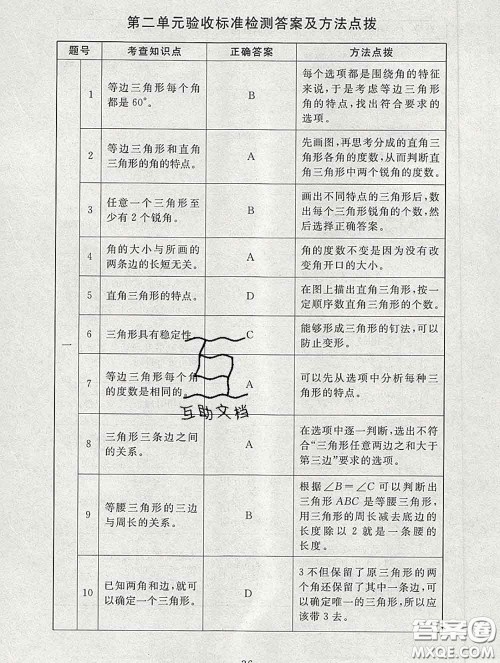 第二单元验收标准检测答案及方法点拨
题号 考查知识点 正确答案 方法点拨
一
1 等边三角形每个角 B 每个选项都是围绕角的特征
都是 60°。 来说,于是考虑等边三角形
角的特点,找出符合要求的
选项。
2 等边三角形和直角 A 先画图,再思考分成的直角三
三角形的角的特点。 角形各角的度数,从而判断直
角三角形中两个锐角的度数。
3 任意一个三角形至 B 画出不同特点的三角形后,数
少有 2 个锐角。 出每个三角形锐角的个数,然
后选择正确答案。
4 角的大小与所画的 A 角的度数不变是因为没有改
两条边的长短无关。 变角开口的大小。
5 直角三角形的特点。 D 在图上描出直角三角形,按一
定顺序数直角三角形的个数。
6 三角形具有稳定性。 C 能够形成三角形的钉法,可以
防止变形。
7 等边三角形每个角 A 可以先从选项中分析每种三
的度数是相同的。 角形的特点。
互助文档
8 三角形三条边之间 A 在选项中逐一判断,选出不符
的关系。 合“三角形任意两边之和大于
第三边”要求的选项。
9 等腰三角形的三边 B 根据∠B=∠C 可以判断出
与周长的关系。 三角形 ABC 是等腰三角形,
用三角形的周长减去底边的
长度除以 2 就是一条腰的
长度。
10 已知两角和边,就可 D 3 不但保留了原三角形的两
以确定一个三角形。 个角还保留了其中一条边,可
以确定唯一的三角形,所以应
该带 3 去。
答案圈
MXQE.COM
26